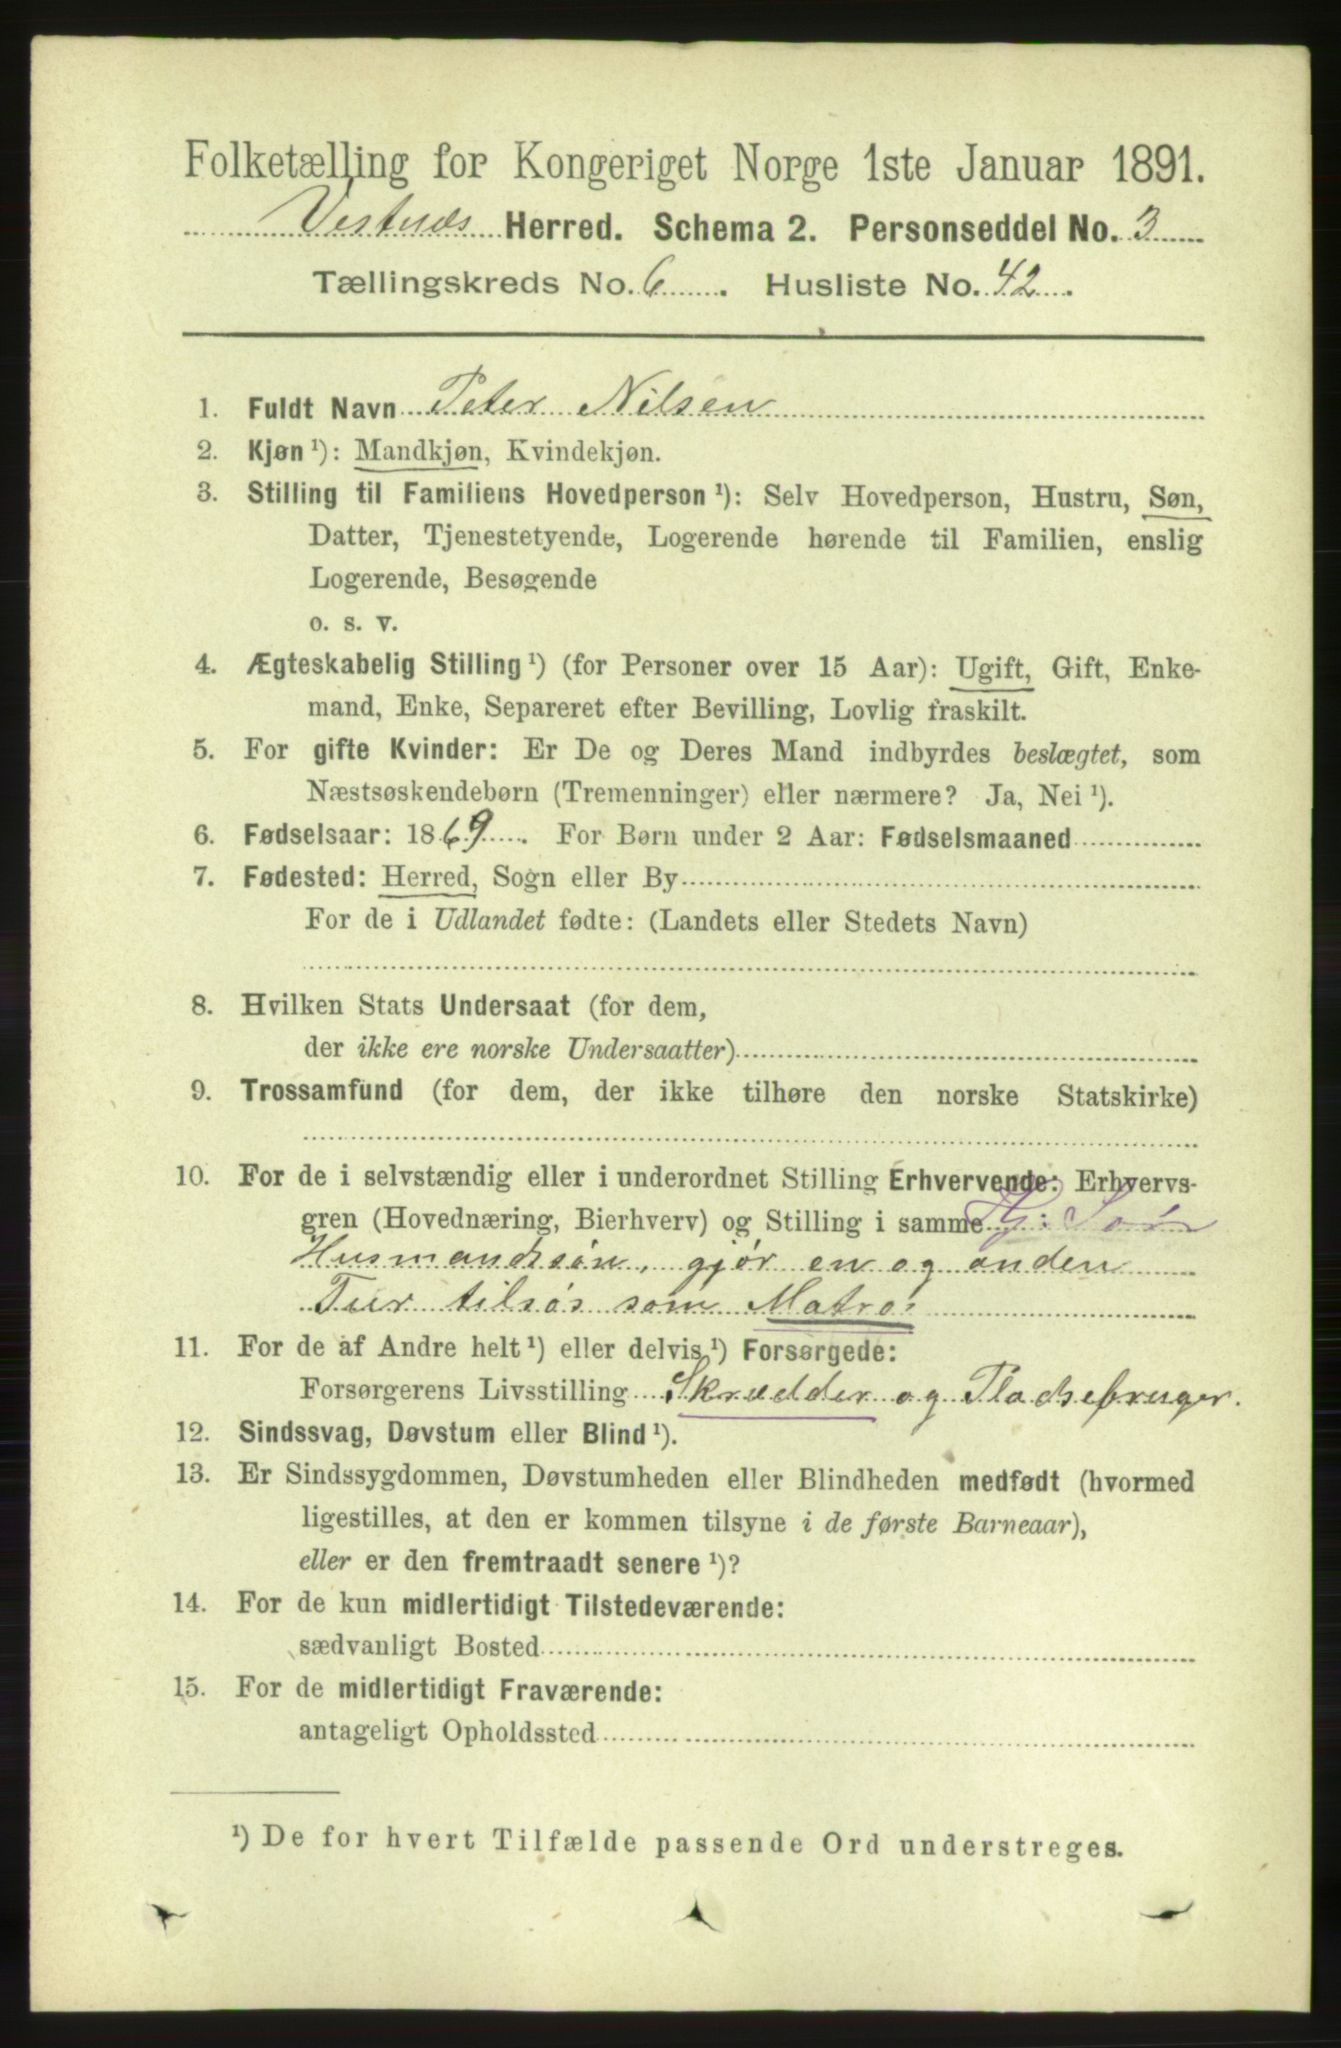 Folketælling for Kongeriget Norge 1ste Januar 1891.
Vestnæs Herred. Schema 2. Personseddel No. 3
Tællingskreds No. 6. Husliste No. 42.
1. Fuldt Navn Peter Nilsen
2. Kjøn ¹): Mandkjøn, Kvindekjøn.
3. Stilling til Familiens Hovedperson ¹): Selv Hovedperson, Hustru, Søn,
Datter, Tjenestetyende, Logerende hørende til Familien, enslig
Logerende, Besøgende
o. s. v.
4. Ægteskabelig Stilling ¹) (for Personer over 15 Aar): Ugift, Gift, Enke-
mand, Enke, Separeret efter Bevilling, Lovlig fraskilt.
5. For gifte Kvinder: Er De og Deres Mand indbyrdes beslægtet, som
Næstsøskendebørn (Tremenninger) eller nærmere? Ja, Nei ¹).
6. Fødselsaar: 1869. For Børn under 2 Aar: Fødselsmaaned
7. Fødested: Herred, Sogn eller By
For de i Udlandet fødte: (Landets eller Stedets Navn)
8. Hvilken Stats Undersaat (for dem,
der ikke ere norske Undersaatter)
9. Trossamfund (for dem, der ikke tilhøre den norske Statskirke)
10. For de i selvstændig eller i underordnet Stilling Erhvervende: Erhvervs-
gren (Hovednæring, Bierhverv) og Stilling i samme
Husmandssøn, gjør en og anden
Tur tilsøs som Matros
11. For de af Andre helt ¹) eller delvis ¹) Forsørgede:
Forsørgerens Livsstilling Skrædder og Pladsebruger.
12. Sindssvag, Døvstum eller Blind ¹).
13. Er Sindssygdommen, Døvstumheden eller Blindheden medfødt (hvormed
ligestilles, at den er kommen tilsyne i de første Barneaar),
eller er den fremtraadt senere ¹)?
14. For de kun midlertidigt Tilstedeværende:
sædvanligt Bosted
15. For de midlertidigt Fraværende:
antageligt Opholdssted
¹) De for hvert Tilfælde passende Ord understreges.